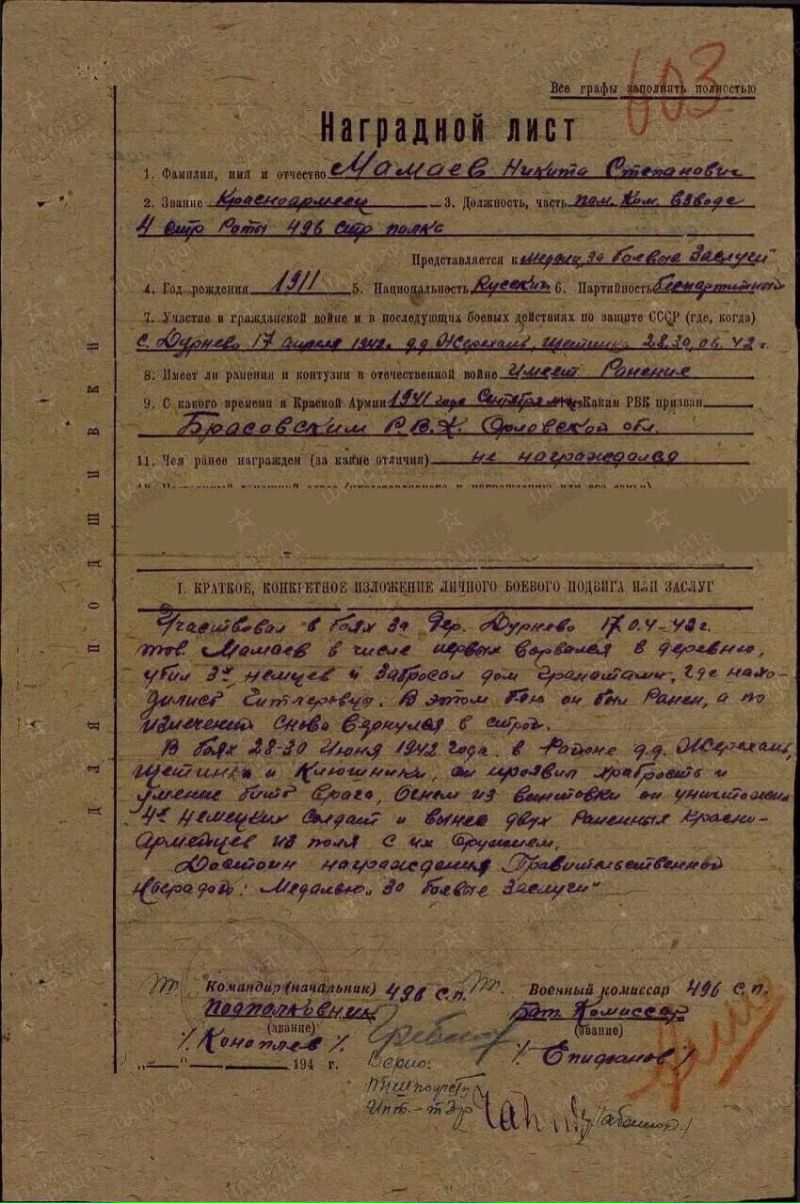 603
Все графы заполнять полностью
Наградной лист
1. Фамилия, имя и отчество Мамаев Никита Степанович
2. Звание Красноармеец 3. Должность, часть пом. Ком. взвода
4 стр Роты 496 стр полка
Представляется к медали „За боевые Заслуги"
4. Год рождения 1911 5. Национальность Русский 6. Партийность беспартийный
7. Участие в гражданской войне и в последующих боевых действиях по защите СССР (где, когда)
с. Дурнево 17 апреля 1942г. д.д. Жерехань, Щетинка 28.30.06.42 г.
8. Имеет ли ранения и контузии в отечественной войне имеет Ранение
9. С какого времени в Красной Армии 1941 года Сентября м-ц Каким РВК призван
Брасовским Р.В.К. Орловской обл.
11. Чем ранее награжден (за какие отличия) не награждался
ДЛЯ ПОДШИВКИ
I. КРАТКОЕ, КОНКРЕТНОЕ ИЗЛОЖЕНИЕ ЛИЧНОГО БОЕВОГО ПОДВИГА ИЛИ ЗАСЛУГ
Участвовал в боях за дер. Дурнево 17.04-42г.
тов Мамаев в числе первых ворвался в деревню,
убил 3х немцев и Забросал дом Гранатами, где нахо-
дились Гитлеровцы. В этом бою он был Ранен, а по
излечении снова вернулся в строй.
В боях 28-30 Июня 1942 года в Районе д.д. Жерехань,
Щетинка и Клюшники, он проявил храбрость и
умение бить врага, Огнем из винтовки он уничтожил
4х немецких солдат и вынес двух Раненных Красно-
Армейцев из поля с их оружием,
Достоин награждения Правительственной
Наградой: Медалью „За боевые Заслуги"
Командир (начальник) 496 с.п. Военный комиссар 496 с.п.
Подполковник Бат. Комиссар
(звание) (звание)
/Коноплев/ /Епифанов/
„ " 194 г.
Верно: